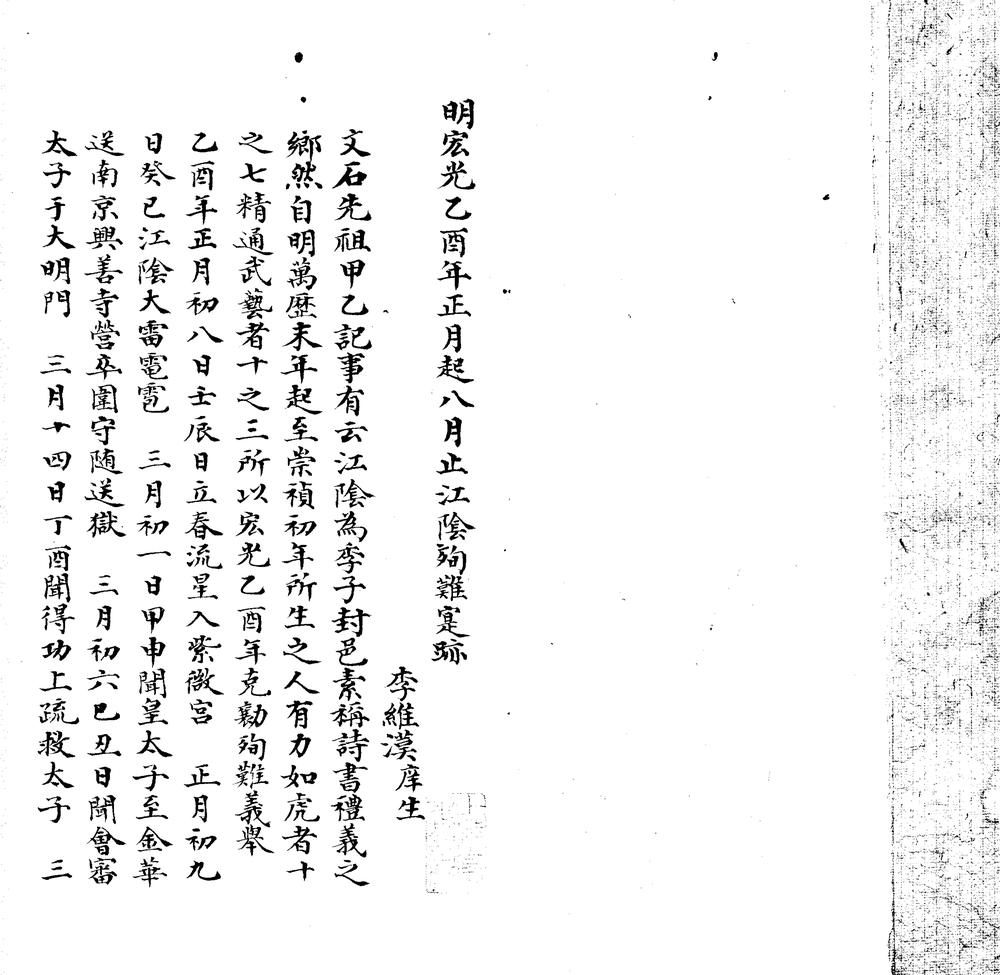 明宏光乙酉年正月起八月止江陰殉難寔跡
李維漠庠生
文石先祖甲乙記事有云江陰為季子封邑素稱詩書禮義之
鄉然自明萬歷末年起至崇禎初年所生之人有力如虎者十
之七精通武藝者十之三所以宏光乙酉年克勷殉難義舉
乙酉年正月初八日壬辰日立春流星入紫微宮　正月初九
日癸巳江陰大雷電雹　三月初一日甲申聞皇太子至金華
送南京興善寺營卒圍守随送獄　三月初六巳丑日聞會審
太子于大明門　三月十四日丁酉聞得功上疏救太子　三